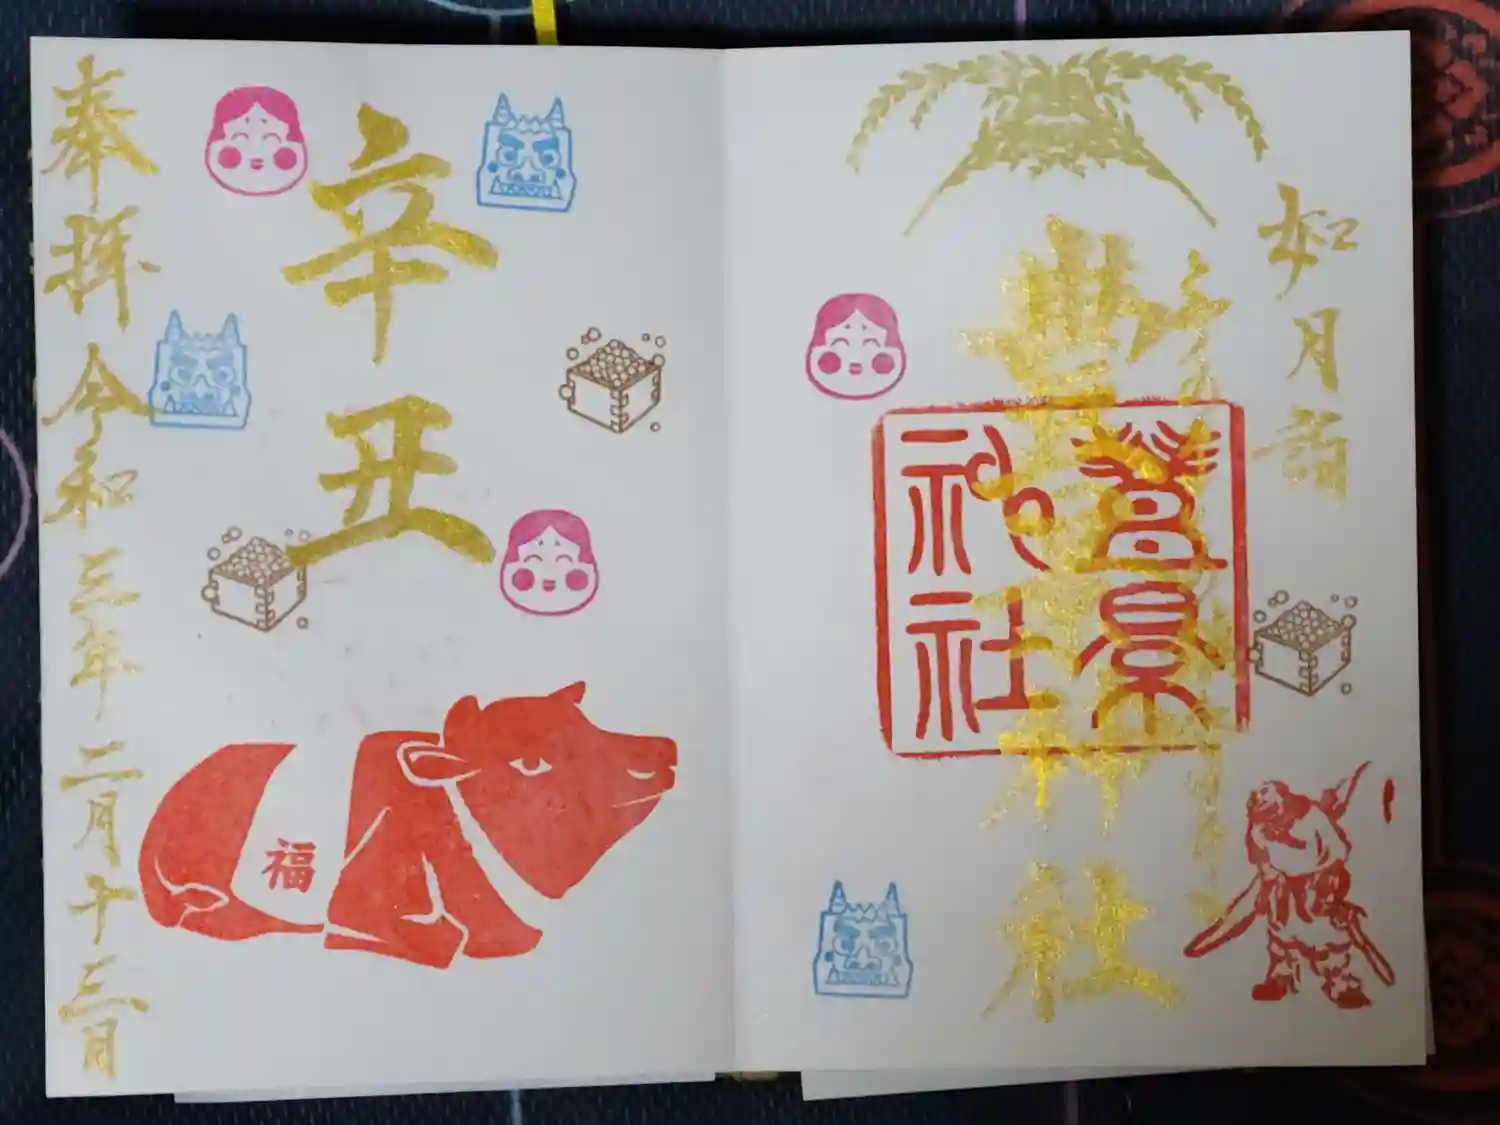 如月詣
豊景神社
豊景
神社
辛丑
福
奉拝 令和三年 二月十三日